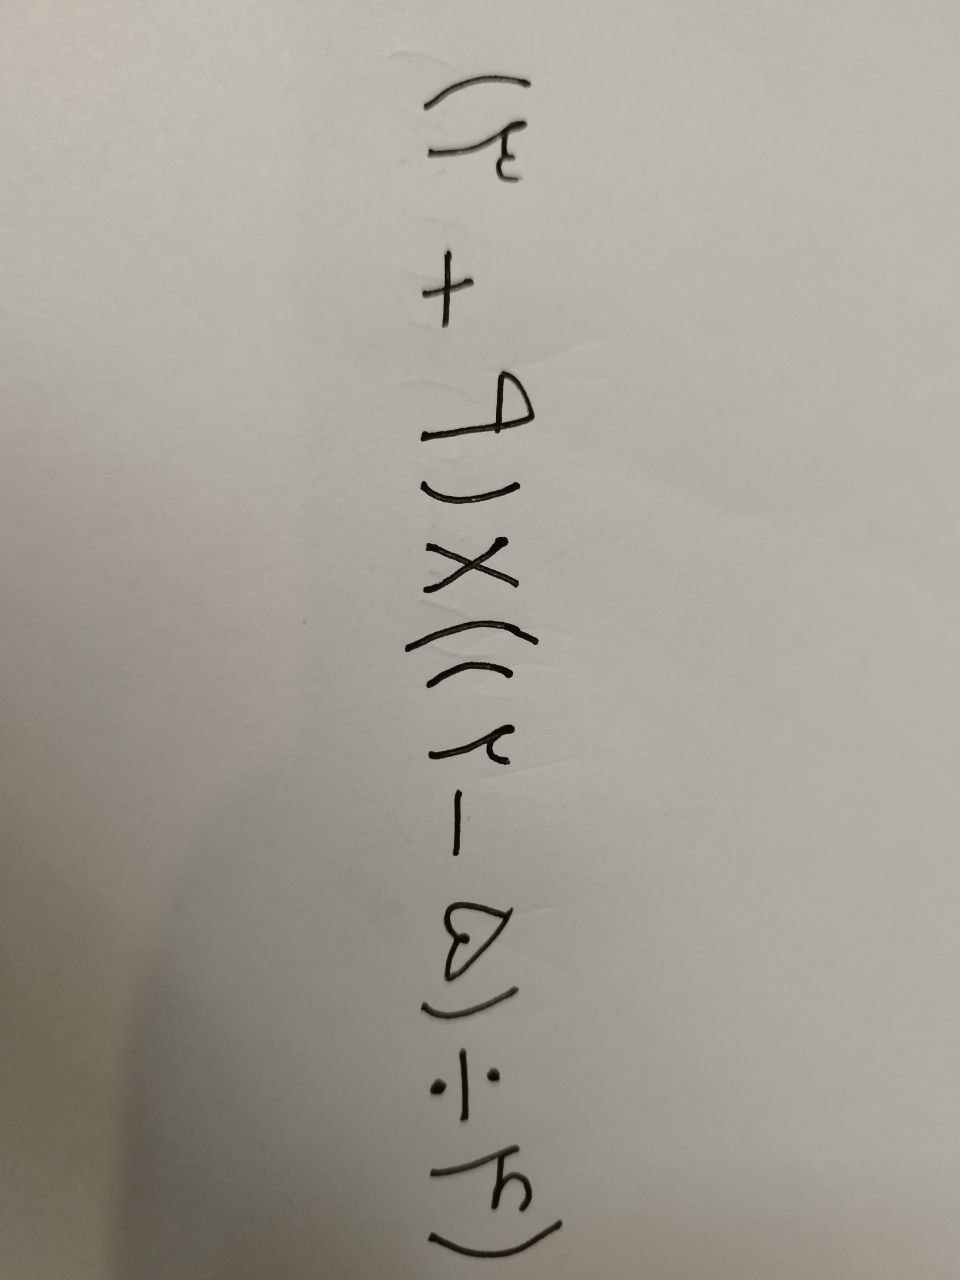 (۳ + ۹) × ((۲ - ۵) ÷ ۴)